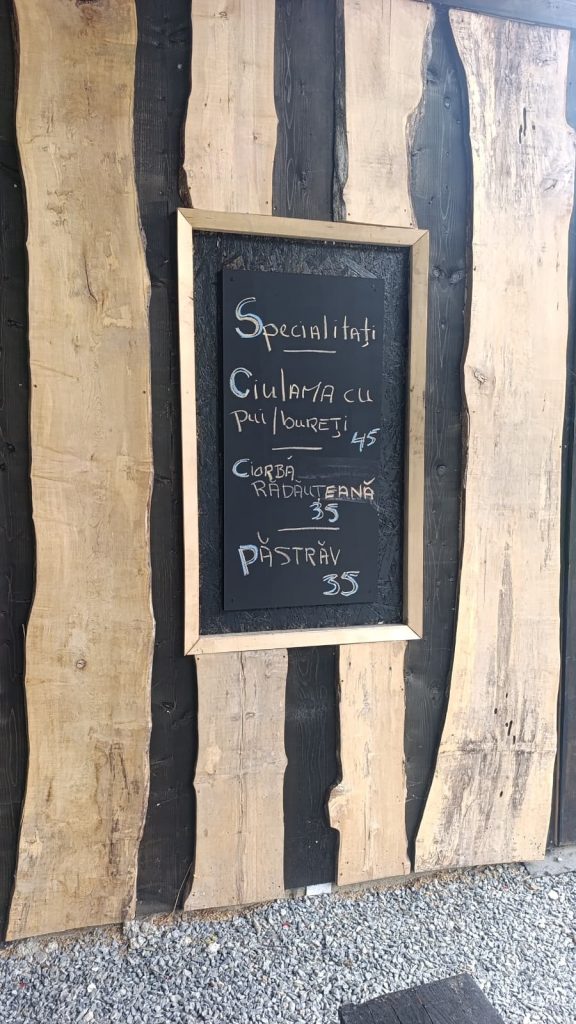 Specialitați
CiulAMA cu
pui/bureți
45
CIORBĂ
RĂDĂUȚEANĂ
35
PĂSTRĂV
35